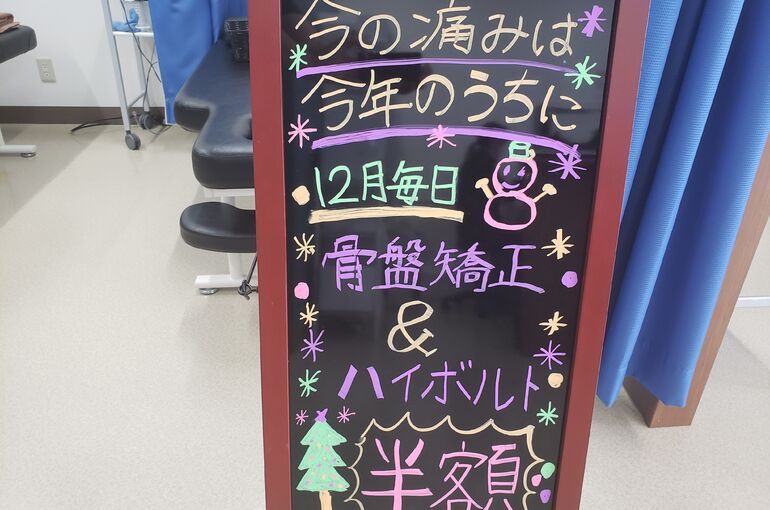 今の痛みは
今年のうちに
12月毎日
骨盤矯正
&
ハイボルト
半額